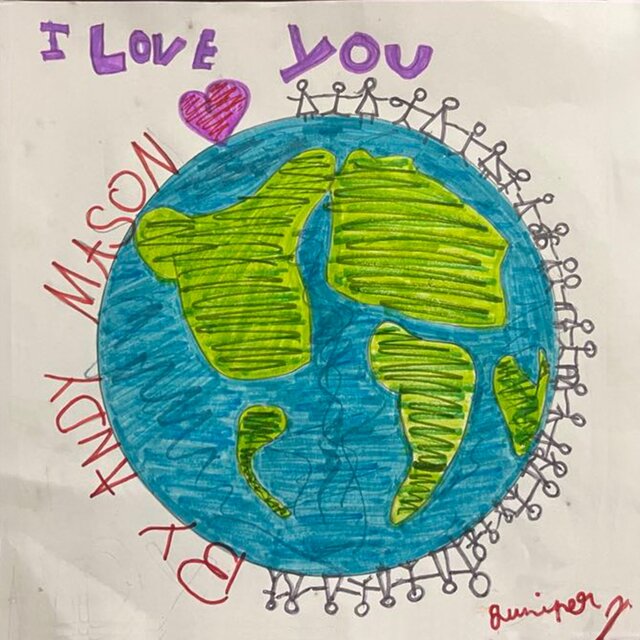 I LOVE YOU
BY ANDY MASON
Juniper